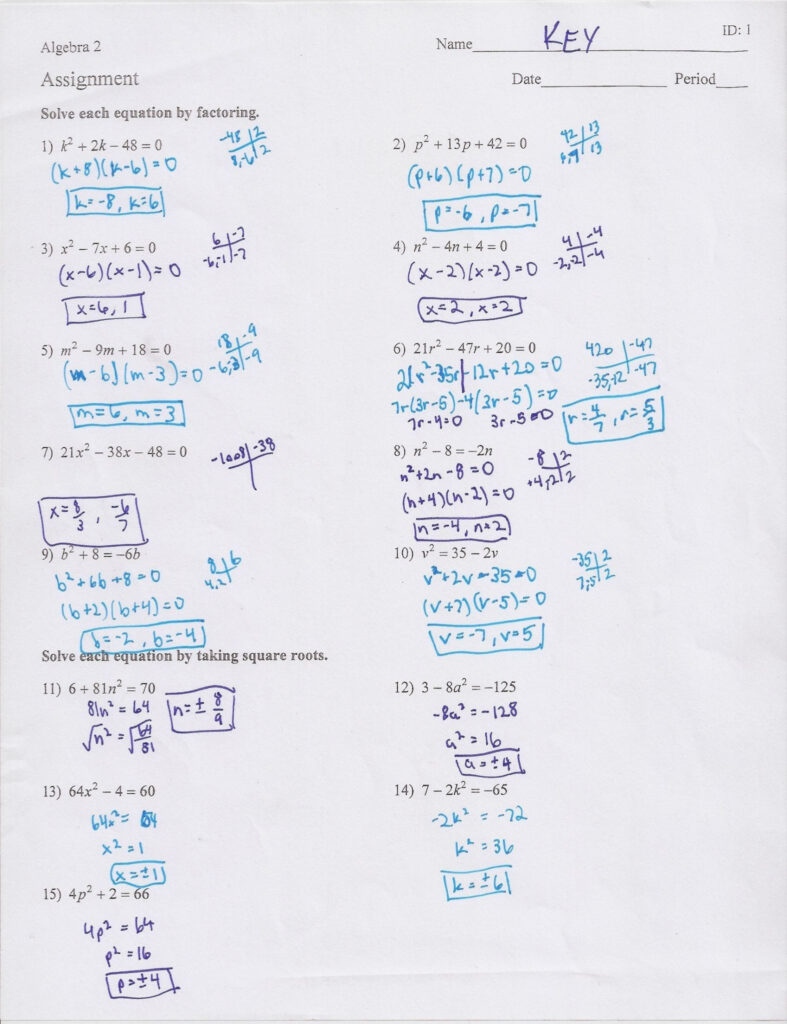 ID: 1
Algebra 2
Name KEY
Assignment
Date Period
Solve each equation by factoring.
1) k² + 2k − 48 = 0
-48 | 2
8,-6 | 2
(k+8)(k-6)=0
k=-8, k=6
2) p² + 13p + 42 = 0
42 | 13
6,7 | 13
(p+6)(p+7)=0
p=-6, p=-7
3) x² − 7x + 6 = 0
6 | -7
-6,-1 | -7
(x-6)(x-1)=0
x=6,1
4) n² − 4n + 4 = 0
4 | -4
-2,-2 | -4
(x-2)(x-2)=0
x=2, x=2
5) m² − 9m + 18 = 0
18 | -9
-6,3 | -9
(m-6)(m-3)=0
m=6, m=3
6) 21r² − 47r + 20 = 0
420 | -47
-35,-12 | -47
21r²-35r|-12r+20=0
7r(3r-5)-4(3r-5)=0
7r-4=0 3r-5=0
r=4/7, r=5/3
7) 21x² − 38x − 48 = 0
-1008 | -38
x=8/3, -6/7
8) n² − 8 = −2n
-8 | 2
+4,-2 | 2
n²+2n-8=0
(n+4)(n-2)=0
n=-4, n=2
9) b² + 8 = −6b
8 | 6
4,2
b²+6b+8=0
(b+2)(b+4)=0
b=-2, b=-4
10) v² = 35 − 2v
-35 | 2
7,-5 | 2
v²+2v-35=0
(v+7)(v-5)=0
v=-7, v=5
Solve each equation by taking square roots.
11) 6 + 81n² = 70
81n² = 64
√n² = √64/81
n=± 8/9
12) 3 − 8a² = −125
-8a² = -128
a² = 16
a=±4
13) 64x² − 4 = 60
64x² = 64
x² = 1
x=±1
14) 7 − 2k² = −65
-2k² = -72
k² = 36
k=±6
15) 4p² + 2 = 66
4p² = 64
p² = 16
p=±4